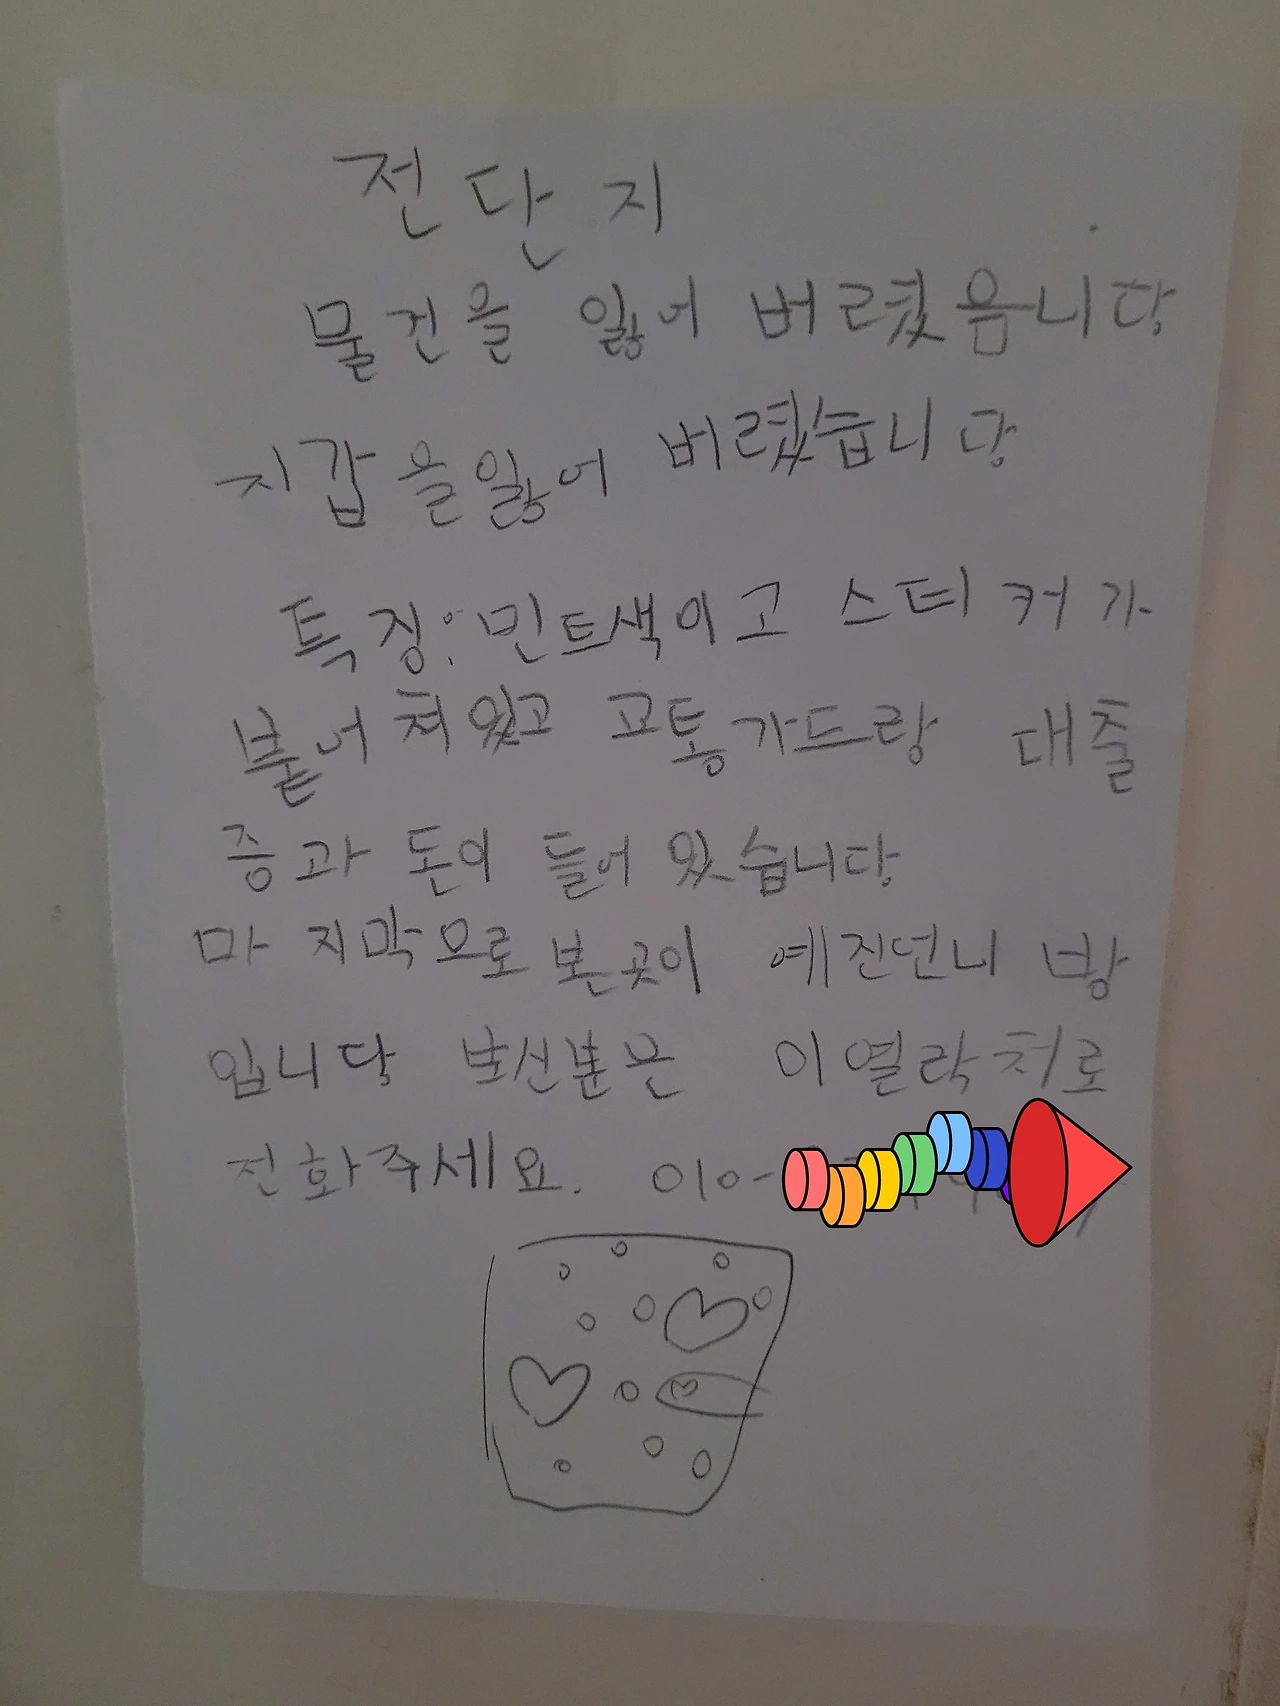 전단지
물건을 잃어 버렸읍니다
지갑을잃어 버렸습니다
특징:민트색이고 스티커가
붙어져있고 교통가드랑 대출
증과 돈이 들어 있습니다
마지막으로 본곳이 예진언니 방
입니다 보신분은 이열락처로
전화주세요. 010-